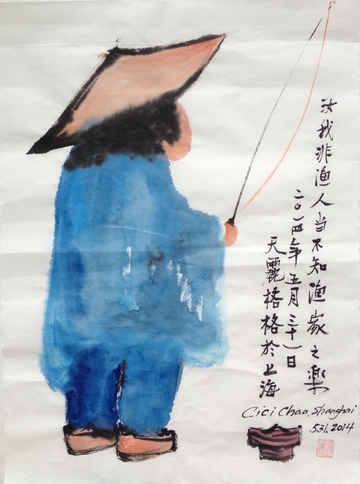 汝我非渔人当不知渔家之樂
二〇一四年五月三十一日
天麗格格於上海
Cici Chao, Shanghai
5.31.2014